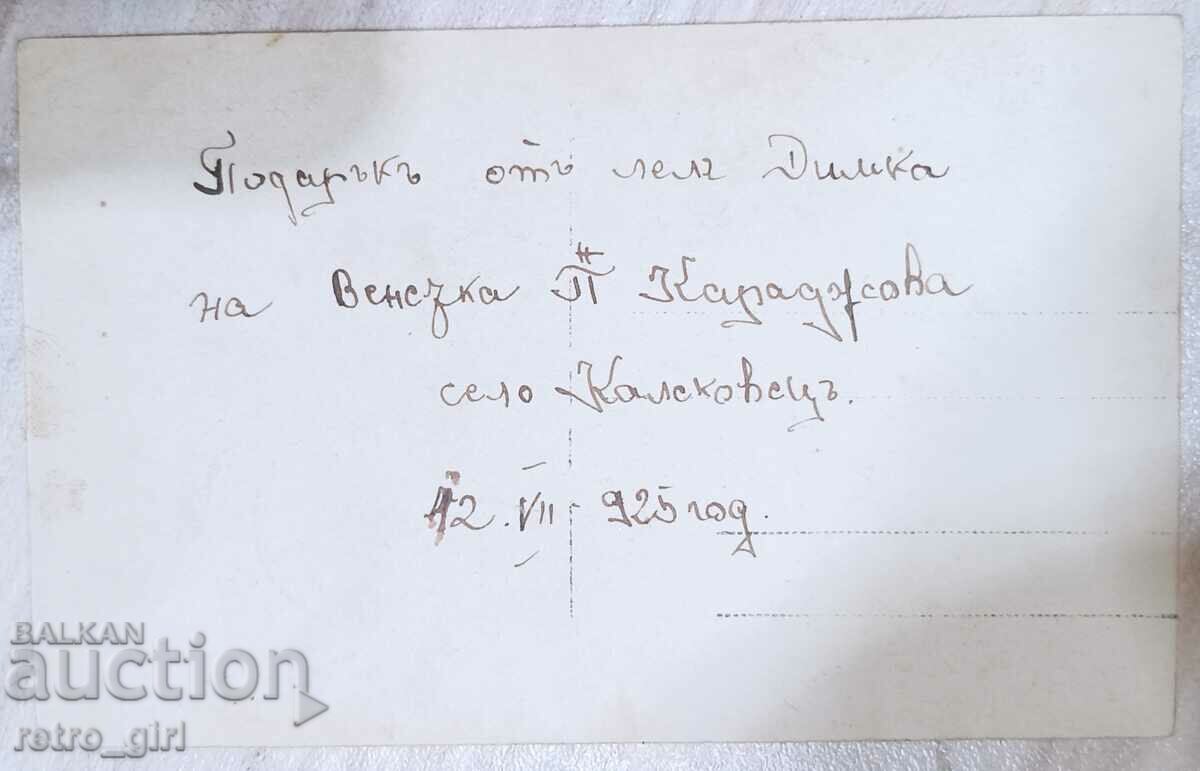 Подаръкъ отъ леля Димка
на Венечка П Караджова
село Калековецъ.
12. VII - 925 год.
BALKAN
auction
retro_girl